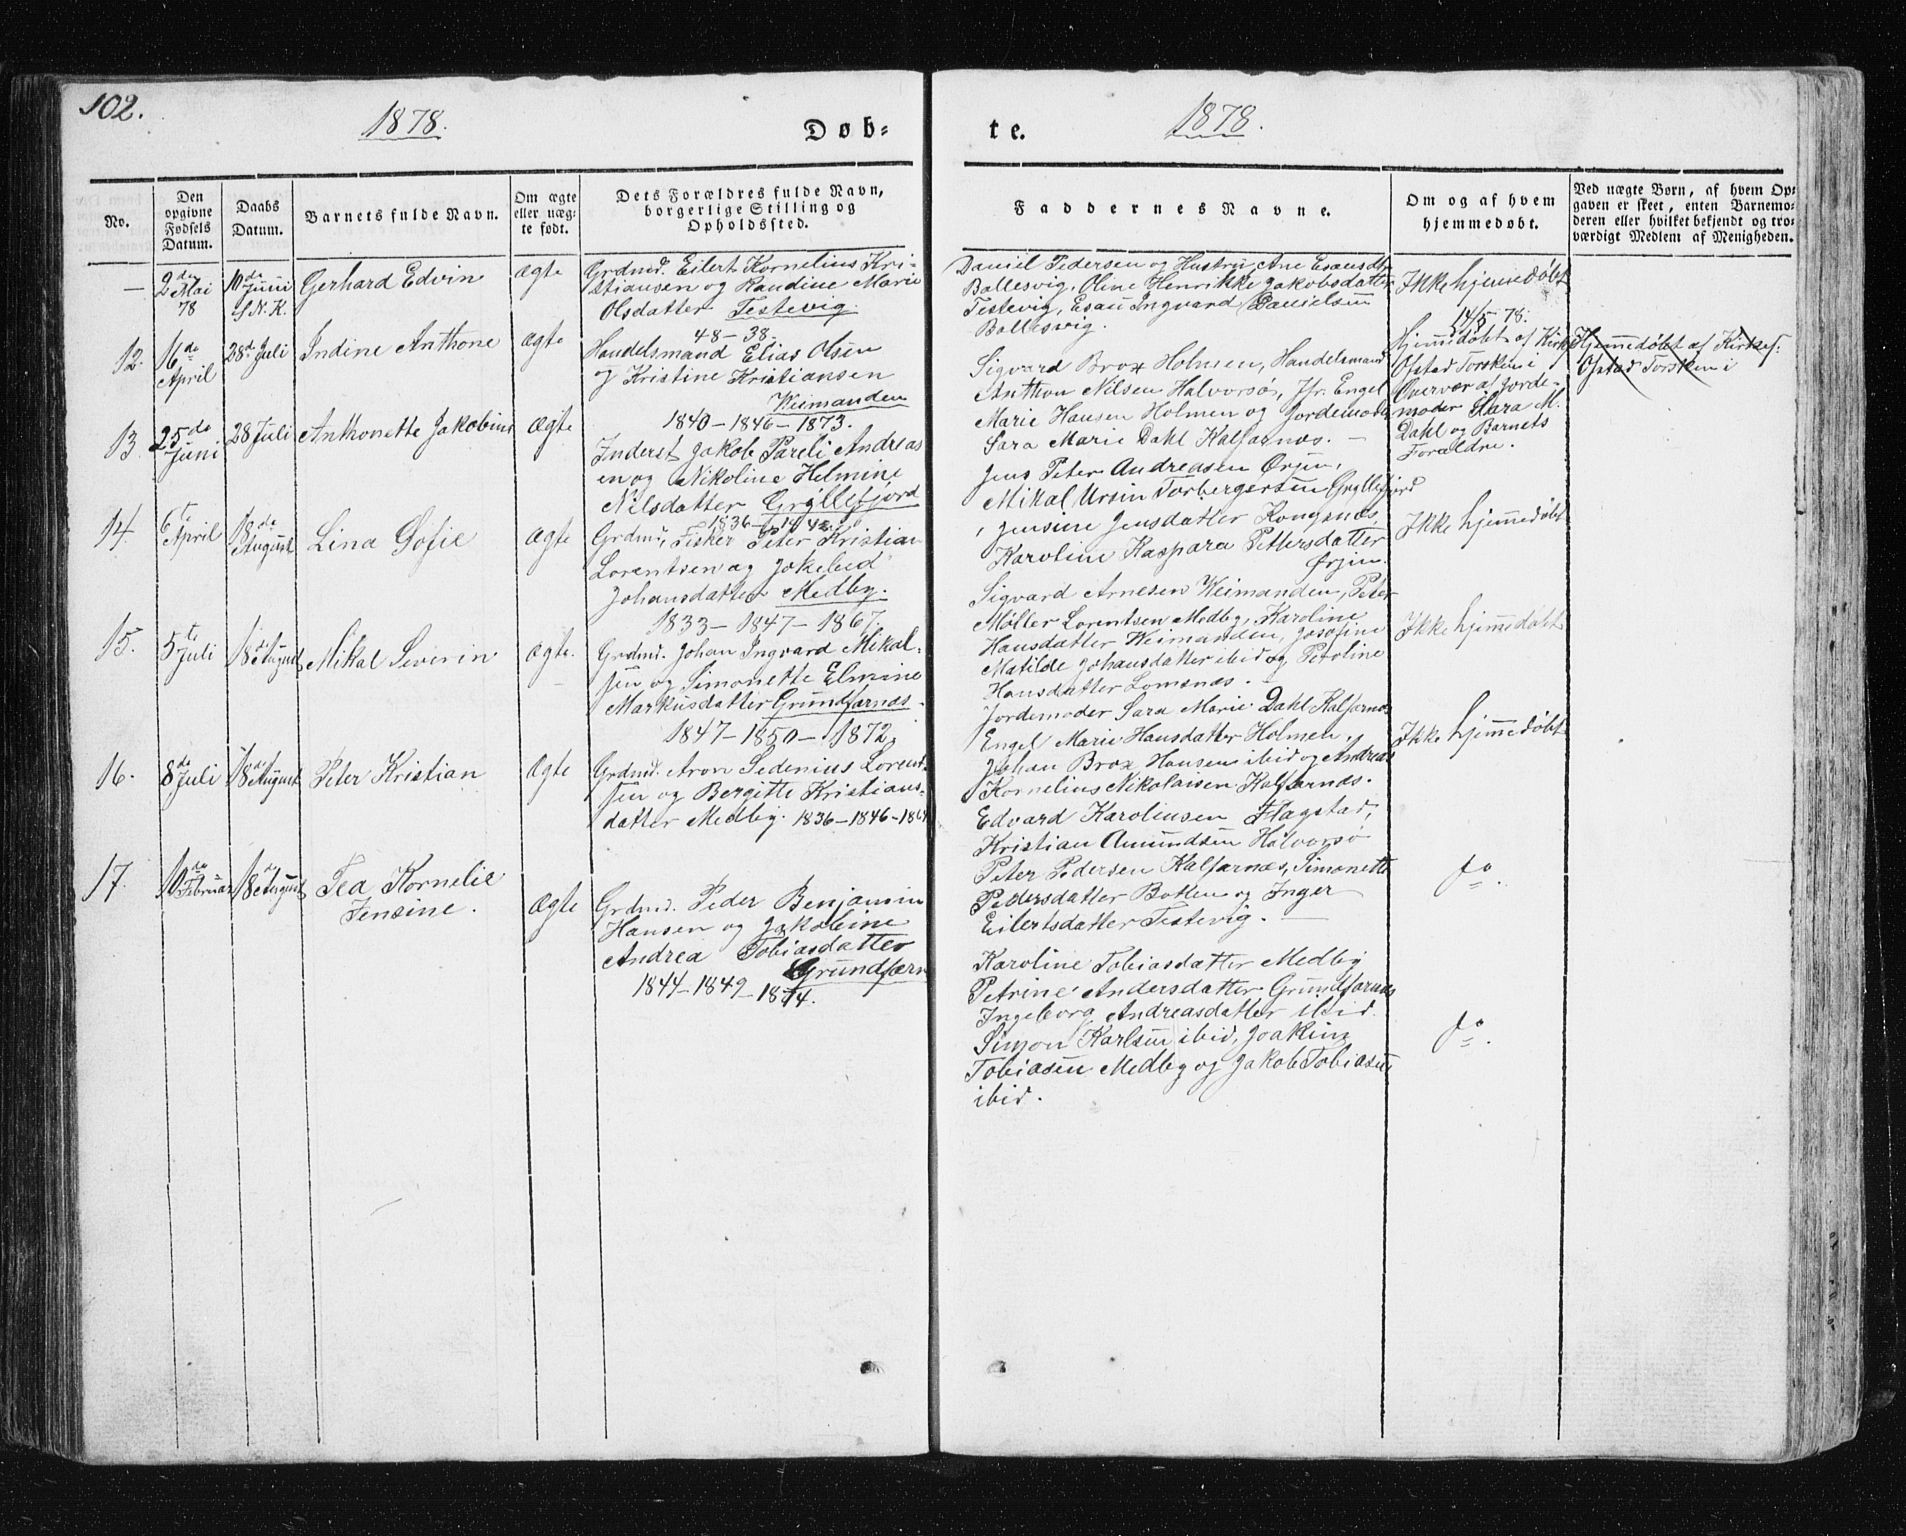 102.
1878.
Døb-
No.
Den opgivne Fødsels Datum.
Daabs Datum.
Barnets fulde Navn.
Om ægte eller uægte født.
Dets Forældres fulde Navn,
borgerlige Stilling og
Opholdssted.
—
2den Mai 78
10de Juni S.N.K.
Gerhard Edvin
ægte
Grdmd. Eilert Kornelius Kri-
stiansen og Randine Marie
Olsdatter Testevig.
48-38.
12.
16de April
28de Juli
Indine Anthone
ægte
Handelsmand Elias Olsen
og Kristine Kristiansen
Weimanden
1840-1846-1873.
13.
25de Juni
28 Juli
Anthonette Jakobine
ægte
Inderst Jakob Pareli Andreas
en og Nikoline Helmine
Nilsdatter Gryllefjord
14.
6te April
18de August
Lina Sofie
ægte
Grdmd. Fisker Peter Kristian
Lorentsen og Jokebed
Johansdatter Medby.
1833-1847-1867.
15.
5te Juli
18de August
Mikal Severin
ægte.
Grdmd. Johan Ingvard Mikal-
sen og Simonette Elmine
Markusdatter Grundfarnæs
1847-1850-1872.
16.
8de Juli
18de August
Peter Kristian
ægte
Grdmd. Aron Sedenius Lorent-
sen og Bergitte Kristians-
datter Medby. 1836-1846-
17.
10de Februar
18de August
Tea Kornelie
Jensine.
ægte
Grdmd. Peder Benjamin
Hansen og Jakobine
Andrea Tobiasdatter
Grundfarn
1844-1849-1874.
te.
1878.
Faddernes Navne.
Om og af hvem
hjemmedøbt.
Ved uægte Børn, af hvem Op-
gaven er skeet, enten Barnemo-
deren eller hvilket bekjendt og tro-
værdigt Medlem af Menigheden.
Daniel Pedersen og Hustru Ane Esausdtr
Ballesvig, Oline Henrikke Jakobsdatter
Testevig, Esau Ingvard Danielsen
Ballesvig.
Ikke hjemmedøbt
Sigvard Brox Holmen, Handelsmand
Anthon Nilsen Halvorsø, Jfr. Engel
Marie Hansen Holmen og Jordemoder
Sara Marie Dahl Kalfarnæs. —
14/5-78.
Hjemmedøbt af Kirkes.
Ofstad Torsken i
Overvær af Jorde-
moder Sara M.
Dahl og Barnets
Forældre.
Hjemmedøbt af Kirkes.
Ofstad Torsken i
Jens Peter Andreasen Ørjen,
Mikal Ursin Torbergersen Gryllefjord
, Jensine Jensdatter Kongsnæs,
Karoline Kaspara Pettersdatter
Ørjen.
Ikke hjemmedøbt
Sigvard Arnesen Weimanden, Peter
Møller Lorentsen Medby, Karoline
Hansdatter Weimanden, Josefine
Matilde Johansdatter ibid og Petoline
Hansdatter Lomsnæs.
Ikke hjemmedøbt
Jordemoder Sara Marie Dahl Kalfarnæs
Engel Marie Hansdatter Holmen,
Johan Brox Hansen ibid og Andreas
Kornelius Nikolaisen Kalfarnæs.
Ikke hjemmedøbt
Edvard Karolinsen Flagstad,
Kristian Amundsen Halvorsø
Peter Pedersen Kalfarnæs, Simonette
Pedersdatter Botten og Inger
Eilertsdatter Testevig. —
do.
Karoline Tobiasdatter Medby
Petrine Andersdatter Grundfarnæs
Ingeborg Andreasdatter ibid.
Simon Karlsen ibid, Joakim
Tobiasen Medby og Jakob Tobiasen
ibid.
do.